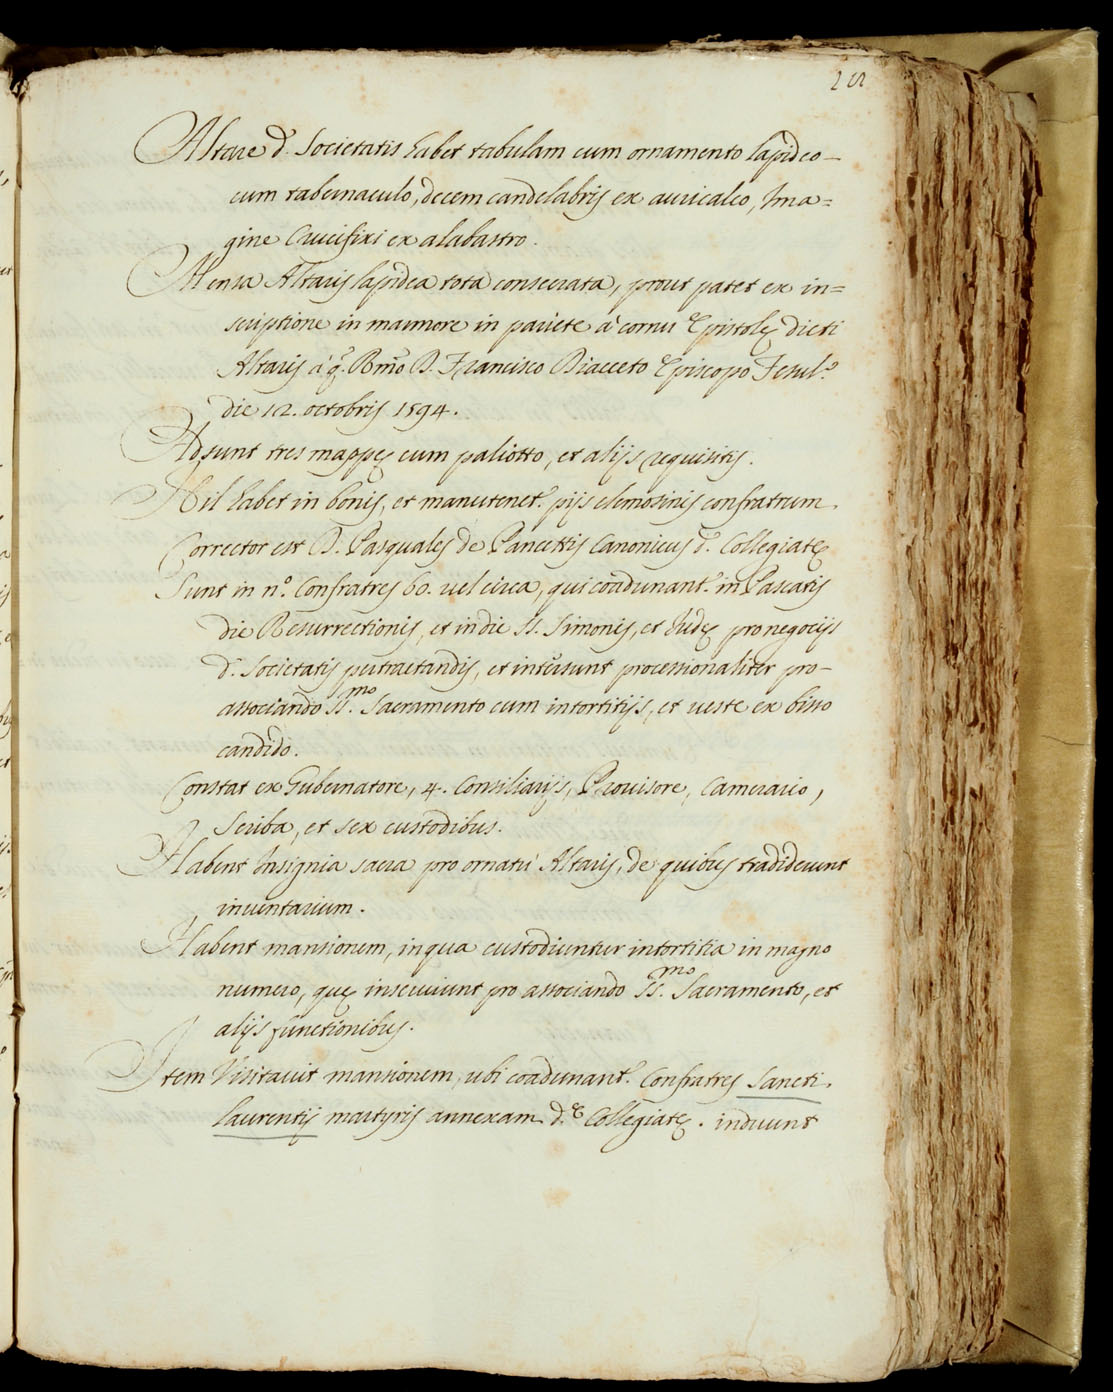 Altare d. Societatis habet tabulam cum ornamento lapideo
cum tabernaculo, decem candelabris ex auricalco, Ima=
gine Crucifixi ex alabastro.
Mensa Altaris lapidea tota consecrata, prout patet ex in=
scriptione in marmore in pariete à cornu Epistolę dicti
Altaris à q. Rmo D. Francisco Diacceto Episcopo Fesul.
die 12. octobris 1594.
Adsunt tres mappę cum paliotto, et alijs requisitis.
Nil habet in bonis, et manutenet. pijs elemosinis confratrum.
Corrector est D. Pasquales de Pancettis Canonicus d. Collegiatę
Sunt in nº. Confratres 60. vel circa, qui coadunant. in Pascatis
die Resurrectionis, et in die Ss. Simonis, et Judę pro negocijs
d. Societatis pertractandis, et intersunt processionaliter pro
associando Ss.mo Sacramento cum intortitijs, et ueste ex bisso
candido.
Constat ex Gubernatore, 4. Consiliarijs, Prouisore, Camerario,
Scriba, et sex custodibus.
Habent Insignia sacra pro ornatu Altaris, de quibus tradiderunt
inuentarium.
Habent mansionem, in qua custodiuntur intortitia in magno
numero, quę inseruiunt pro associando Ss.mo Sacramento, et
alijs functionibus.
Item Visitauit mansionem, ubi coadunant. Confratres Sancti
Laurentij martyris annexam d.ę Collegiatę. induunt